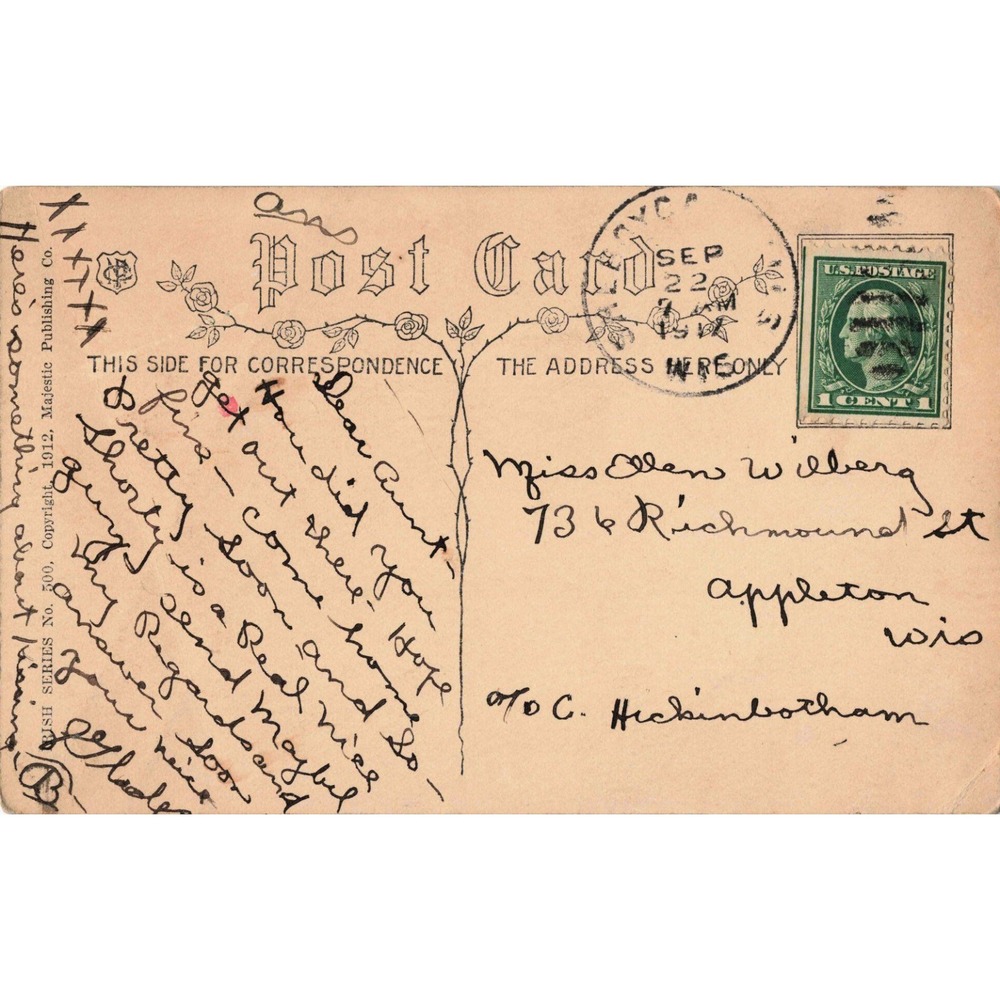 ans
Post Card
THIS SIDE FOR CORRESPONDENCE
THE ADDRESS HERE ONLY
SEP
22
7 AM
191
WIS
U.S. POSTAGE
1 CENT 1
Dear Aunt
How did you
get out there, Hope
fine - Come home
Pretty Soon and So-
Shorty is a Real nice
guy. Send Maybel
my Regards and
answer soon
your neice
Gladys
xxxxx
Here's something about Kissing
B
IRISH SERIES No. 500, Copyright, 1912, Majestic Publishing Co.
Miss Ellen Wilberg
736 Richmound St
Appleton
Wis
c/o C. Hickinbotham